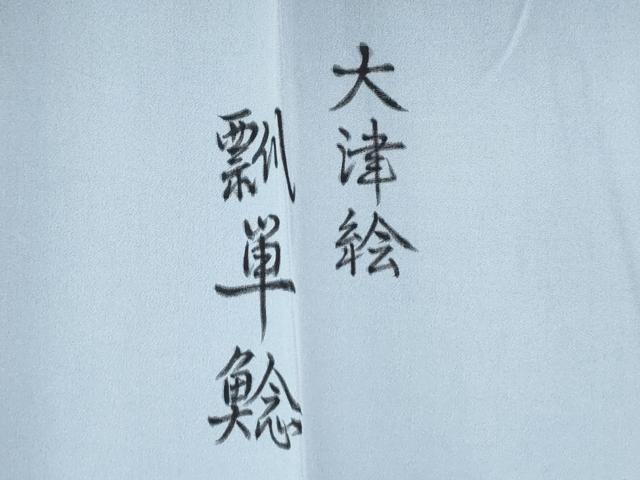 大津絵
瓢単鯰